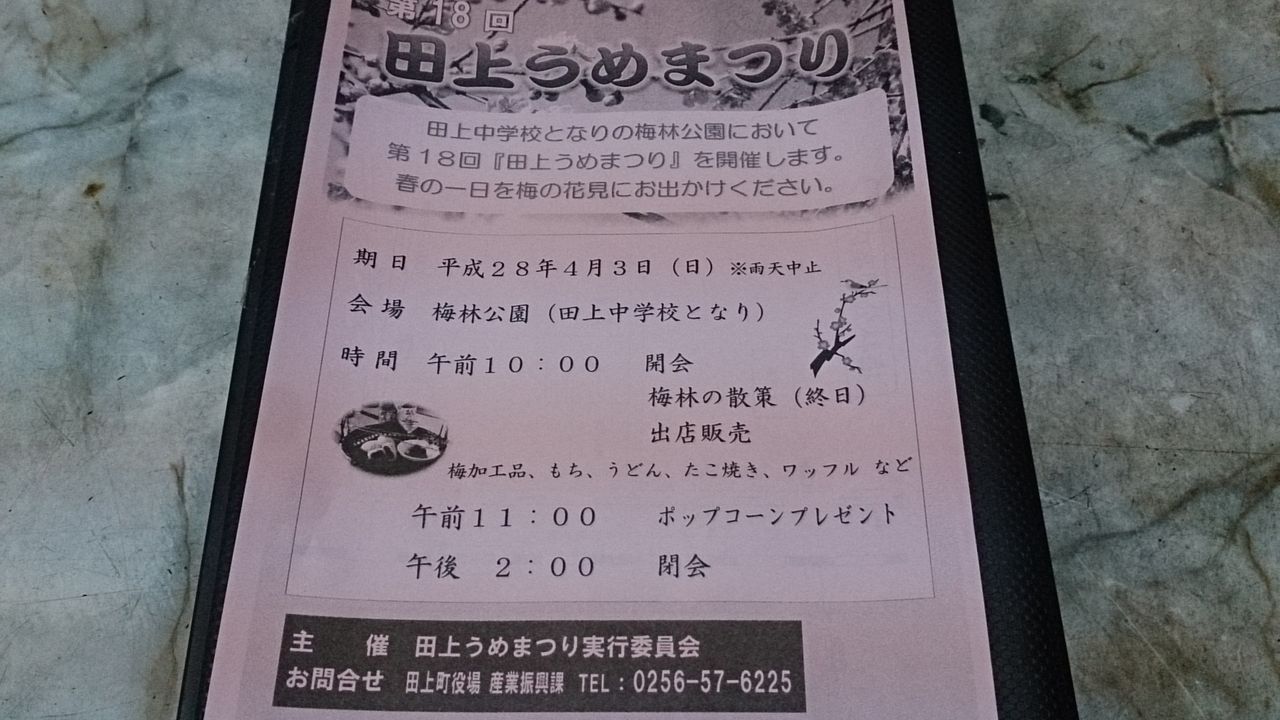 第18回
田上うめまつり
田上中学校となりの梅林公園において
第18回『田上うめまつり』を開催します。
春の一日を梅の花見にお出かけください。
期日　平成２８年４月３日（日）※雨天中止
会場　梅林公園（田上中学校となり）
時間　午前１０：００　開会
梅林の散策（終日）
出店販売
梅加工品、もち、うどん、たこ焼き、ワッフル など
午前１１：００　ポップコーンプレゼント
午後　２：００　閉会
主　催　田上うめまつり実行委員会
お問合せ　田上町役場 産業振興課 TEL：0256-57-6225